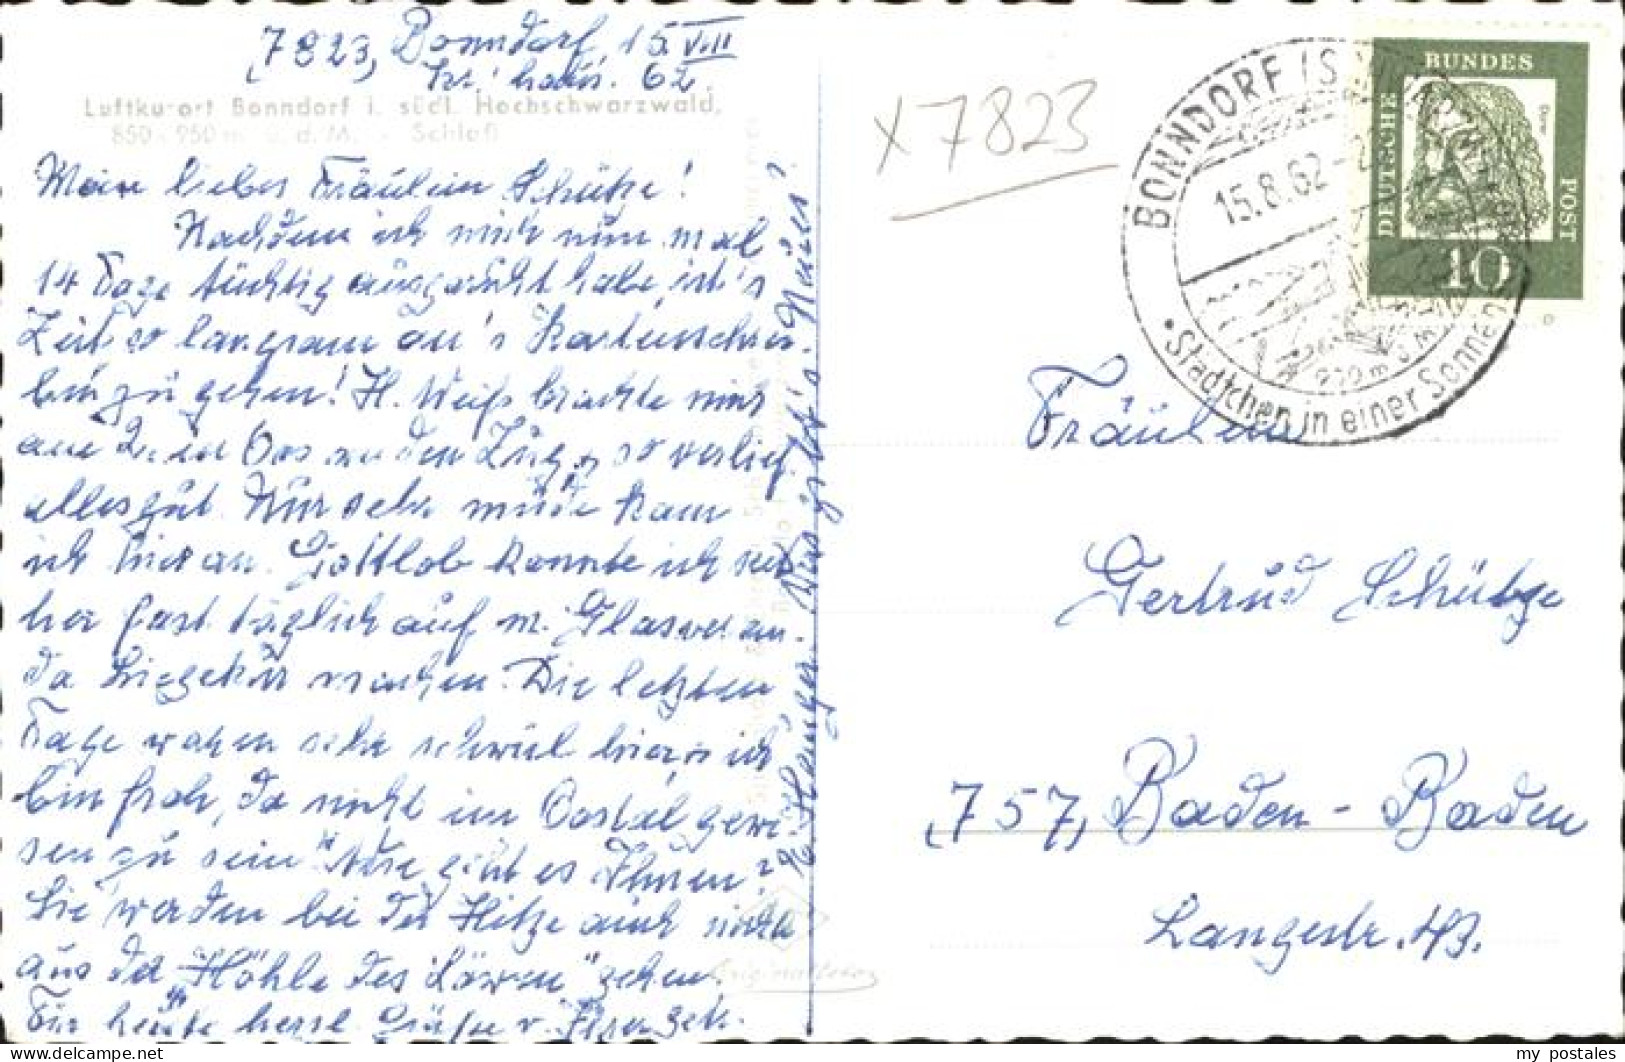 7823, Bonndorf, 15.VIII
62
Luftkurort Bonndorf i. südl. Hochschwarzwald,
850-950 m ü. d. M. - Schloß
Mein liebes Fräulein Schütze!
Nachdem ich mich nun mal
14 Tage tüchtig ausgeruht habe, ist's
Zeit so langsam an's Kartenschrei-
ben zu gehen! H. Weiß brachte mich
am 2. in Oos an den Zug, so verlief
alles gut. Nur sehr müde kam
ich hier an. Gottlob konnte ich seit
her fast täglich auf m. Glasveran-
da Liegekur machen. Die letzten
Tage waren sehr schwül hier, ich
bin froh, da nicht im Oostal gewe-
sen zu sein. Wie geht es Ihnen?
Sie werden bei der Hitze auch nicht
aus der "Höhle des Löwen" gehen.
Für heute herzl. Grüße v. Ihrer
Was gibt's Neues?
X 7823
BONNDORF
15.8.62
Städtchen in einer Sonnen
DEUTSCHE
BUNDES
POST
10
Fräulein
Gertrud Schütze
757, Baden-Baden
Langestr. 43.
my postales